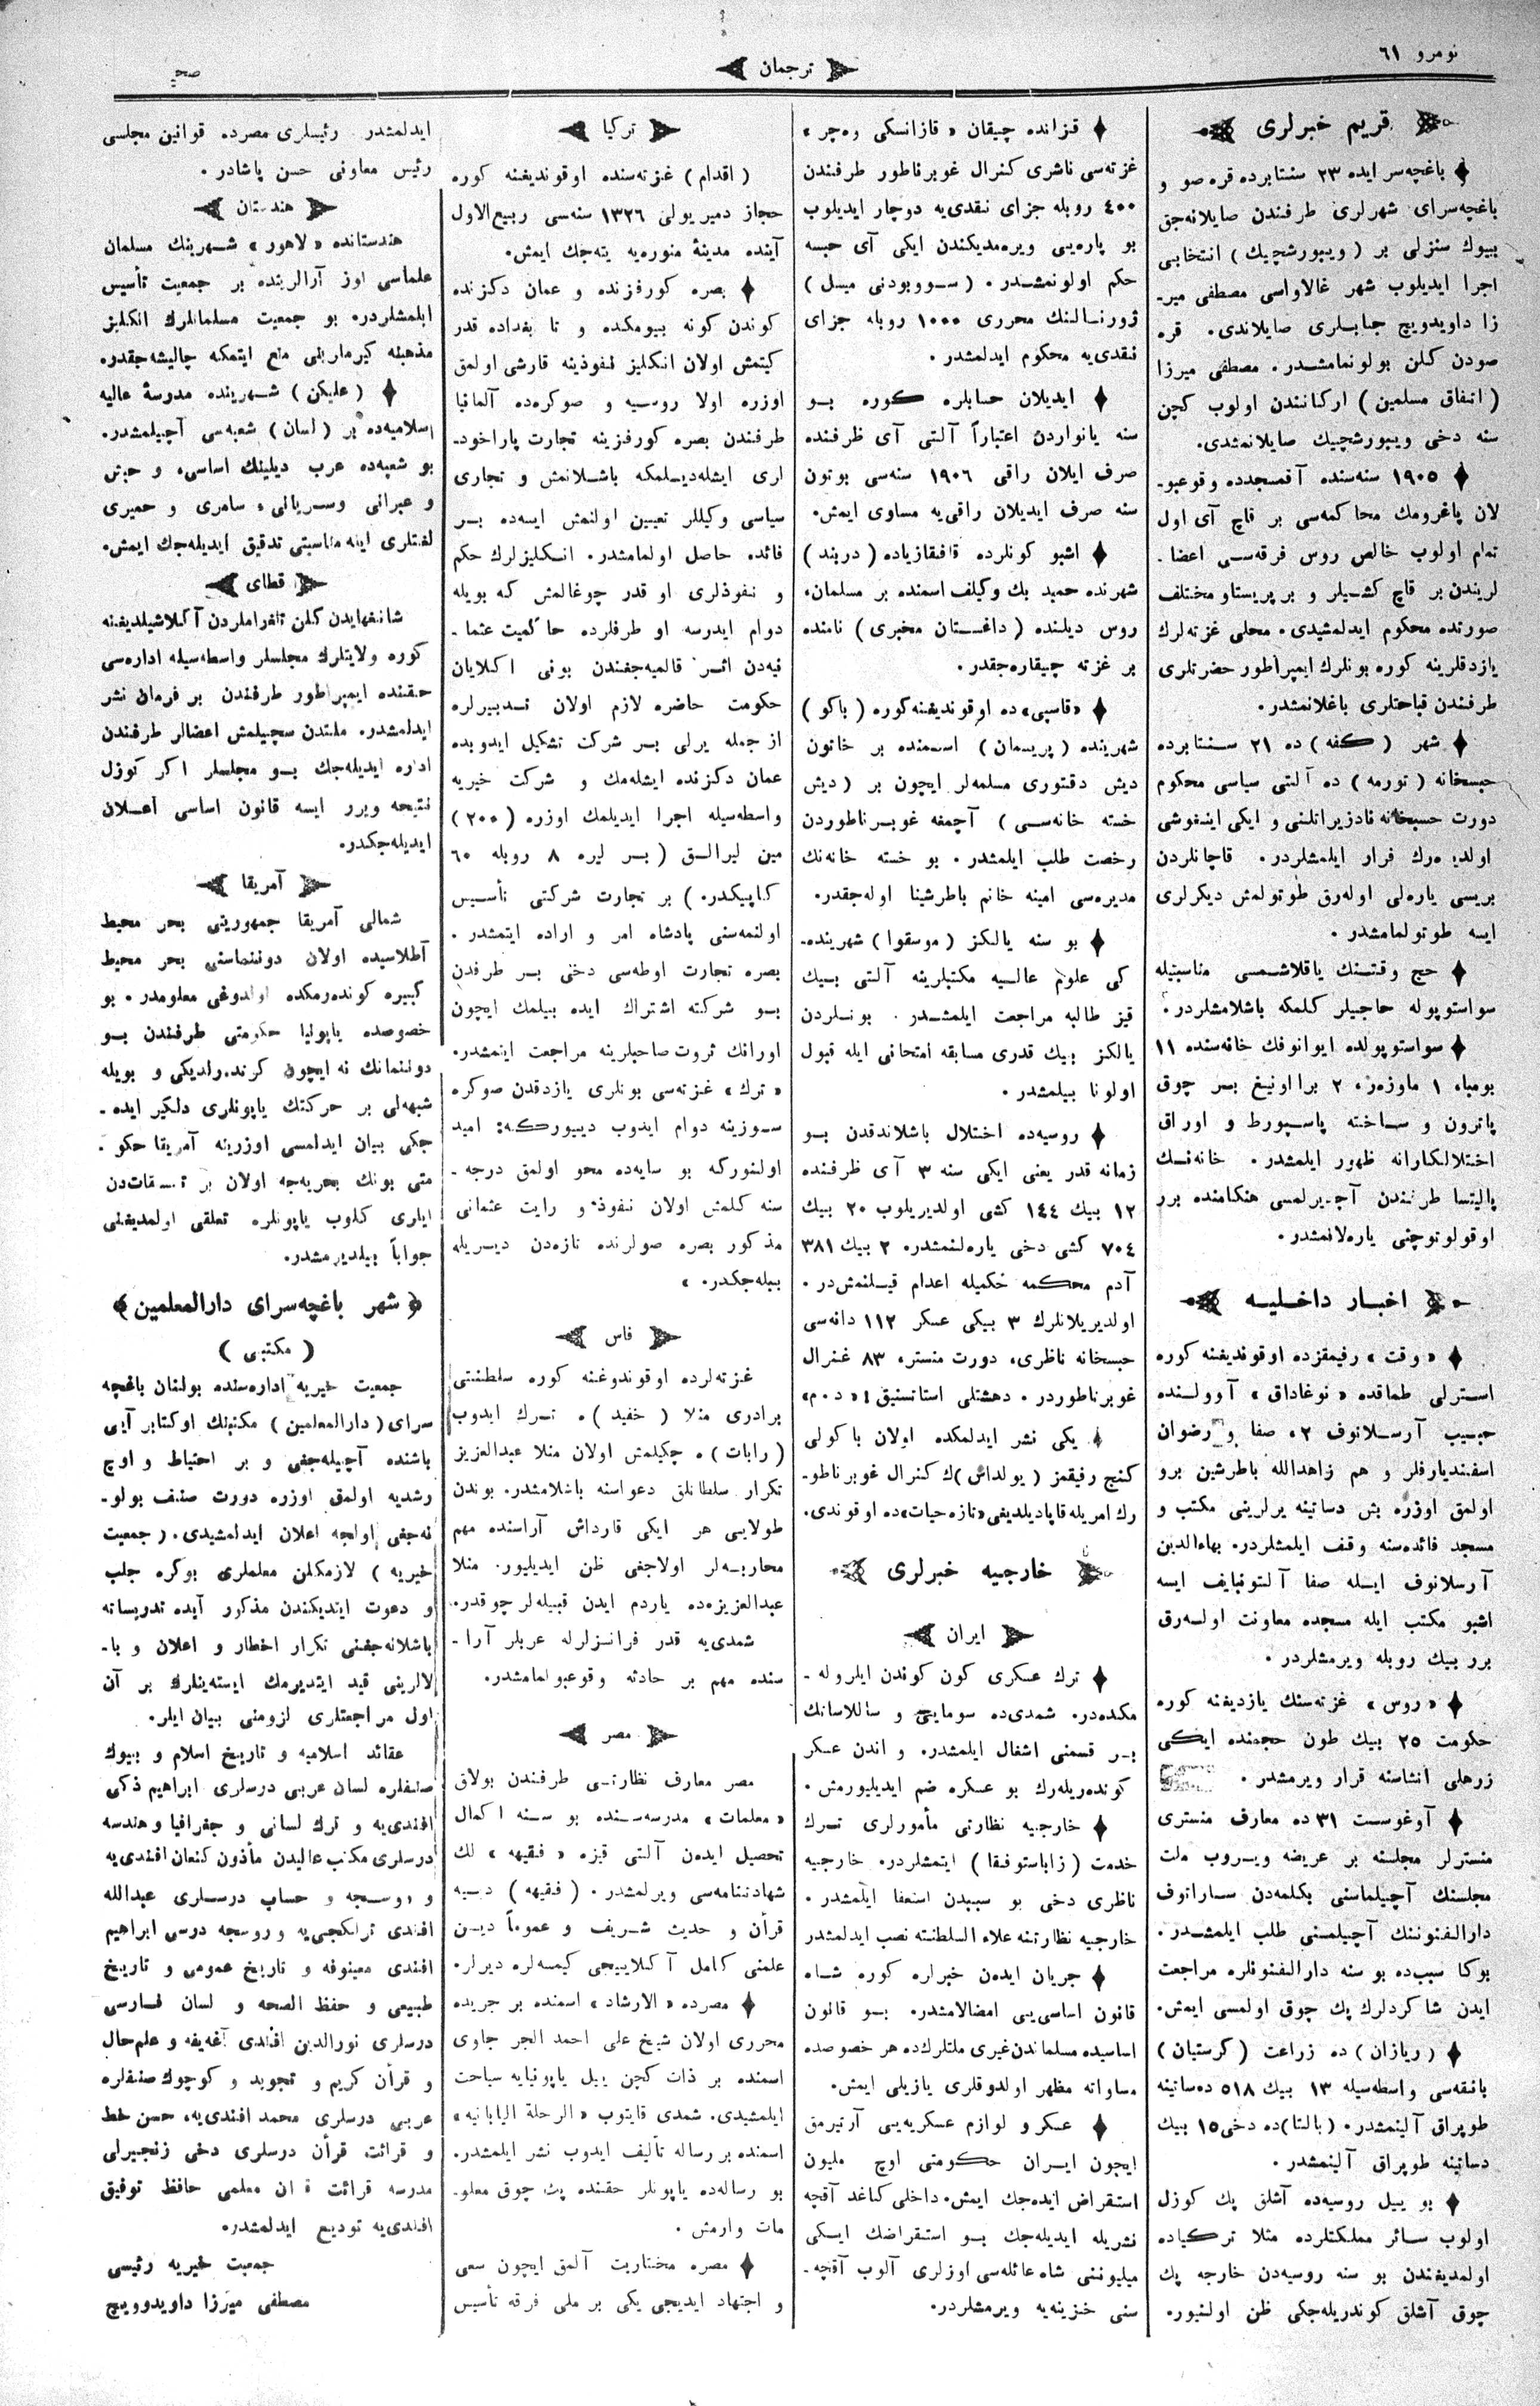 نومرو ٦١
ترجمان
صحـ
قریم خبرلری
باغچه‌سر ایده ٢٣ سنتابرده قره صو و
باغچه‌سرای شهرلری طرفندن صایلانه‌جق
بیوك سنزلی بر ( ویبورشچیك ) انتخابی
اجرا ایدیلوب شهر غالاواسی مصطفی میر-
زا داویدویچ جنابلری صایلاندی. قره
صودن كلن بولونمامشدر. مصطفی میرزا
( اتفاق مسلمین ) اركانندن اولوب كچن
سنه دخی ویبورشچیك صایلانمشدی.
١٩٠٥ سنه‌سنده آقمسجدده وقوعبو-
لان پاغرومك محاكمه‌سی بر قاچ آی اول
تمام اولوب خالص روس فرقه‌سی اعضا-
لریندن بر قاچ كشیلر و بر پریستاو مختلف
صورتده محكوم ایدلمشیدی. محلی غزته‌لرك
یازدقلرینه كوره بونلرك ایمپراطور حضرتلری
طرفندن قباحتلری باغلانمشدر.
شهر ( كفه ) ده ٢١ سنتابرده
حبسخانه ( تورمه ) ده آلتی سیاسی محكوم
دورت حبسخانه نادزیراتلنی و ایكی اینفوشی
اولدیره‌رك فرار ایلمشلردر. قاچانلردن
بریسی یاره‌لی اوله‌رق طوتولمش دیكرلری
ایسه طوتولمامشدر.
حج وقتنك یاقلاشمسی مناسبتیله
سواستوپوله حاجیلر كلمكه باشلامشلردر.
سواستوپولده ایوانوفك خانه‌سنده ١١
بومبا، ١ ماوزه‌ر، ٢ برااونیغ بر چوق
پاترون و ساخته پاسپورط و اوراق
اختلالكارانه ظهور ایلمشدر. خانه‌نك
پالیتسا طرفندن آچدیرلمسی هنكامنده برر
اوقولوتوچنی یاره‌لانمشدر.
اخبار داخلیه
« وقت » رفیقمزده اوقوندیغنه كوره
استرلی طماقده « نوغاداق » آوولنده
حبیب آرسلانوف ٢، صفا و رضوان
اسفندیارفلر و هم زاهدالله باطرشین برو
اولمق اوزره بش دساتینه یرلرینی مكتب و
مسجد فائده‌سنه وقف ایلمشلردر. بهاءالدین
آرسلانوف ایله صفا آلتونبایف ایسه
اشبو مكتب ایله مسجده معاونت اوله‌رق
برر بیك روبله ویرمشلردر.
« روس » غزته‌سنك یازدیغنه كوره
حكومت ٢٥ بیك طون حجمنده ایكی
زرهلی انشاسنه قرار ویرمشدر.
آوغوست ٣١ ده معارف منستری
منسترلر مجلسنه بر عریضه ویروب ملت
مجلسنك آچیلماسنی بكلمه‌دن ساراتوف
دارالفنوننك آچیلمسنی طلب ایلمشدر.
بوكا سبب‌ده بو سنه دارالفنونلره مراجعت
ایدن شاكردلرك پك چوق اولمسی ایمش.
( ریازان ) ده زراعت ( كرستیان )
بانقه‌سی واسطه‌سیله ١٣ بیك ٥١٨ ده‌ساتینه
طوپراق آلینمشدر. ( بالتا ) ده دخی ١٥ بیك
دساتینه طوپراق آلینمشدر.
بو ییل روسیه‌ده آشلق پك كوزل
اولوب سائر مملكتلرده مثلا تركیاده
اولمدیغندن بو سنه روسیه‌دن خارجه پك
چوق آشلق كوندریله‌جكی ظن اولنیور.
قزانده چیقان « قازانسكی وه‌چر »
غزته‌سی ناشری كنرال غوبرناطور طرفندن
٤٠٠ روبله جزای نقدی‌یه دوچار ایدیلوب
بو پاره‌یی ویره‌مدیكندن ایكی آی حبسه
حكم اولونمشدر. ( سووبودنی میسل )
ژورنالنك محرری ١٠٠٠ روبله جزای
نقدی‌یه محكوم ایدلمشدر.
ایدیلان حسابلره كوره بو
سنه یانواردن اعتباراً آلتی آی ظرفنده
صرف ایلان راقی ١٩٠٦ سنه‌سی بوتون
سنه صرف ایدیلان راقی‌یه مساوی ایمش.
اشبو كونلرده قافقازیاده ( دربند )
شهرنده حمید بك وكیلف اسمنده بر مسلمان،
روس دیلنده ( داغستان مخبری ) نامنده
بر غزته چیقاره‌جقدر.
«قاسپی» ده اوقوندیغنه‌كوره ( باكو )
شهرینده ( پریسمان ) اسمنده بر خاتون
دیش دقتوری مسلمه‌لر ایچون بر ( دیش
خسته خانه‌سی ) آچمغه غوبرناطوردن
رخصت طلب ایلمشدر. بو خسته خانه‌نك
مدیره‌سی امینه خانم باطرشینا اوله‌جقدر.
بو سنه یالكز ( موسقوا ) شهرینده-
كی علوم عالیه مكتبلرینه آلتی بیك
قیز طالبه مراجعت ایلمشدر. بونلردن
یالكز بیك قدری مسابقه امتحانی ایله قبول
اولونا بیلمشدر.
روسیه‌ده اختلال باشلاندقدن بو
زمانه قدر یعنی ایكی سنه ٣ آی ظرفنده
١٢ بیك ١٤٤ كشی اولدیریلوب ٢٠ بیك
٧٠٤ كشی دخی یاره‌لنمشدر. ٢ بیك ٣٨١
آدم محكمه حكمیله اعدام قیلنمش‌در.
اولدیریلانلرك ٣ بیكی عسكر ١١٢ دانه‌سی
حبسخانه ناظری، دورت منستر، ٨٣ غنرال
غوبرناطوردر. دهشتلی استاتستیق! « د.م»
یكی نشر ایدلمكده اولان باكولی
كنج رفیقمز ( یولداش )ك كنرال غوبرناطو-
رك امریله قاپادیلدیغی «تازه حیات»ده اوقوندی.
خارجیه خبرلری
ایران
ترك عسكری كون كوندن ایلروله-
مكده‌در. شمدی‌ده سومایی و سالاسانك
بر قسمنی اشغال ایلمشدر. واندن عسكر
كونده‌ریله‌رك بو عسكره ضم ایدیلیورمش.
خارجیه نظارتی مأمورلری ترك
خدمت ( زاباستوفقا ) ایتمشلردر. خارجیه
ناظری دخی بو سببدن استعفا ایلمشدر.
خارجیه نظارتنه علاء السلطنته نصب ایدلمشدر
جریان ایده‌ن خبرلره كوره شاه
قانون اساسی‌یی امضالامشدر. بو قانون
اساسیده مسلماندن‌غیری ملتلرك‌ده هر خصوصده
مساواته مظهر اولدوقلری یازیلی ایمش.
عسكر و لوازم عسكریه‌یی آرتیرمق
ایچون ایران حكومتی اوچ ملیون
استقراض ایده‌جك ایمش. داخلی كاغد آقچه
نشریله ایدیله‌جك بو استقراضك ایكی
میلیوننی شاه عائله‌سی اوزلری آلوب آقچه-
سنی خزینه‌یه ویرمشلردر.
تركیا
( اقدام ) غزته‌سنده اوقوندیغنه كوره
حجاز دمیریولی ١٣٢٦ سنه‌سی ربیع‌الاول
آینده مدینهٔ منوره‌یه یته‌جك ایمش.
بصره كورفزنده و عمان دكزنده
كوندن كونه بیومكده و تا بغداده قدر
كیتمش اولان انكلیز نفوذینه قارشی اولمق
اوزره اولا روسیه و صوكره‌ده آلمانیا
طرفندن بصره كورفزینه تجارت پاراخود-
لری ایشله‌دیلمكه باشلانمش و تجاری
سیاسی وكیللر تعیین اولنمش ایسه‌ده بر
فائده حاصل اولمامشدر. انكلیزلرك حكم
و نفوذلری او قدر چوغالمش كه بویله
دوام ایدرسه او طرفلرده حاكمیت عثما-
نیه‌دن اثر قالمیه‌جغندن بونی اكلایان
حكومت حاضره لازم اولان تدبیرلره
از جمله یرلی بر شركت تشكیل ایدوبده
عمان دكزنده ایشله‌مك و شركت خیریه
واسطه‌سیله اجرا ایدیلمك اوزره ( ٢٠٠ )
مین لیرالق ( بر لیره ٨ روبله ٦٠
كاپیكدر. ) بر تجارت شركتی تأسیس
اولنمه‌سنی پادشاه امر و اراده ایتمشدر.
بصره تجارت اوطه‌سی دخی بر طرفدن
بو شركته اشتراك ایده بیلمك ایچون
اورانك ثروت صاحبلرینه مراجعت ایتمشدر.
« ترك » غزته‌سی بونلری یازدقدن صوكره
سوزینه دوام ایدوب دییوركه: امید
اولنوركه بو سایه‌ده محو اولمق درجه-
سنه كلمش اولان نفوذ و رایت عثمانی
مذكور بصره صولرنده تازه‌دن دیریله
بیله‌جكدر. »
فاس
غزته‌لرده اوقوندوغنه كوره سلطنتی
برادری منلا ( خفید )ه ترك ایدوب
( رابات )ه چكیلمش اولان منلا عبدالعزیز
تكرار سلطانلق دعواسنه باشلامشدر. بوندن
طولایی هر ایكی قارداش آراسنده مهم
محاربه‌لر اولاجغی ظن ایدیلیور. منلا
عبدالعزیزه‌ده یاردم ایدن قبیله‌لر چوقدر.
شمدی‌یه قدر فرانزلرله عربلر آرا-
سنده مهم بر حادثه وقوعبولمامشدر.
مصر
مصر معارف نظارتی طرفندن بولاق
« معلمات » مدرسه‌سنده بو سنه اكمال
تحصیل ایده‌ن آلتی قیزه « فقیهه » لك
شهادتنامه‌سی ویرلمشدر. ( فقیهه ) دییه
قرآن و حدیث شریف و عموماً دین
علمنی كامل آكلاییجی كیمسه‌لره دیرلر.
مصرده « الارشاد » اسمنده بر جریده
محرری اولان شیخ علی احمد الجرجاوی
اسمنده بر ذات كچن ییل یاپونیایه سیاحت
ایلمشیدی. شمدی قایتوب « الرحلة الیابانیه »
اسمنده بر رساله تألیف ایدوب نشر ایلمشدر.
بو رساله‌ده یاپونلر حقنده پك چوق معلو-
مات وارمش.
مصره مختاریت آلمق ایچون سعی
و اجتهاد ایدیجی یكی بر ملی فرقه تأسیس
ایدلمشدر. رئیسلری مصرده قوانین مجلسی
رئیس معاونی حسن پاشادر.
هندستان
هندستانده « لاهور » شهرینك مسلمان
علماسی اوز آرالرینده بر جمعیت تأسیس
ایلمشلردر. بو جمعیت مسلمانلرك انكلیز
مذهبنه كیرمارینی منع ایتمكه چالیشه‌جقدر.
( علیكن ) شهرینده مدرسهٔ عالیه
اسلامیه‌ده بر ( لسان ) شعبه‌سی آچیلمشدر.
بو شعبه‌ده عرب دیلینك اساسی، و حبش
و عبرانی و سریانی، سامری و حمیری
لغتلری اینه مناسبتی تدقیق ایدیله‌جك ایمش.
قطای
شانغهایدن كلن تلغراملردن آكلاشیلدیغنه
كوره ولایتلرك مجلسلر واسطه‌سیله اداره‌سی
حقنده ایمپراطور طرفندن بر فرمان نشر
ایدلمشدر. ملتدن سچیلمش اعضالر طرفندن
اداره ایدیله‌جك بو مجلسلر اكر كوزل
نتیجه ویرر ایسه قانون اساسی اعلان
ایدیله‌جكدر.
آمریقا
شمالی آمریقا جمهوریتی بحر محیط
آطلاسیده اولان دوننماسنی بحر محیط
كبیره كونده‌رمكده اولدوغی معلومدر. بو
خصوصده یاپونیا حكومتی طرفندن بو
دوننمانك نه ایچون كوندرلدیكی و بویله
شبهه‌لی بر حركتك یاپونلری دلكیر ایده-
جكی بیان ایدلمسی اوزرینه آمریقا حكو-
متی بونك بحریه‌جه اولان بر تنسیقات‌دن
ایلری كلوب یاپونلره تعلقی اولمدیغنی
جواباً بیلدیرمشدر.
﴿ شهر باغچه‌سرای دارالمعلمین ﴾
( مكتبی )
جمعیت خیریه اداره‌سنده بولنان باغچه
سرای ( دارالمعلمین ) مكتبنك اوكتابر آیی
باشنده آچیله‌جغی و بر احتیاط و اوچ
رشدیه اولمق اوزره دورت صنف بولو-
نه‌جغی اولجه اعلان ایدلمشیدی. ( جمعیت
خیریه ) لازمكلن معلملری بوكره جلب
و دعوت ایتدیكندن مذكور آیده تدریساته
باشلانه‌جغنی تكرار اخطار و اعلان و با-
لالرینی قید ایتدیرمك ایسته‌ینلرك بر آن
اول مراجعتلری لزومنی بیان ایلر.
عقائد اسلامیه و تاریخ اسلام و بیوك
صنفلره لسان عربی درسلری ابراهیم ذكی
افندی‌یه و ترك لسانی و جغرافیا و هندسه
درسلری مكتب عالیدن مأذون كنعان افندی‌یه
و روسجه و حساب درسلری عبدالله
افندی ترلكجی‌یه و روسجه درسی ابراهیم
افندی معینوفه و تاریخ عمومی و تاریخ
طبیعی و حفظ الصحه و لسان فارسی
درسلری نورالدین افندی آغه‌یفه و علم‌حال
و قرآن كریم و تجوید و كوچوك صنفلره
عربی درسلری محمد افندی‌یه، حسن خط
و قرائت قرآن درسلری دخی زنجیرلی
مدرسه قرائت قرآن معلمی حافظ توفیق
افندی‌یه تودیع ایدلمشدر.
جمعیت خیریه رئیسی
مصطفی میرزا داویدوویچ